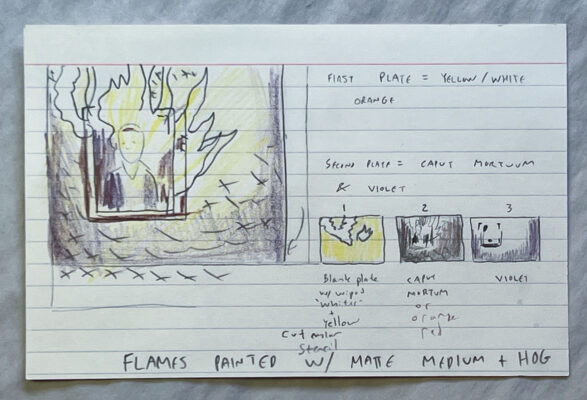 FIRST PLATE = YELLOW/WHITE
ORANGE
SECOND PLATE = CAPUT MORTUUM
& VIOLET
1 2 3
Blank plate CAPUT VIOLET
w/ wiped MORTUM
"whites" or
+ orange
Yellow red
Cut mylar
Stencil
FLAMES PAINTED W/ MATTE MEDIUM + HOG